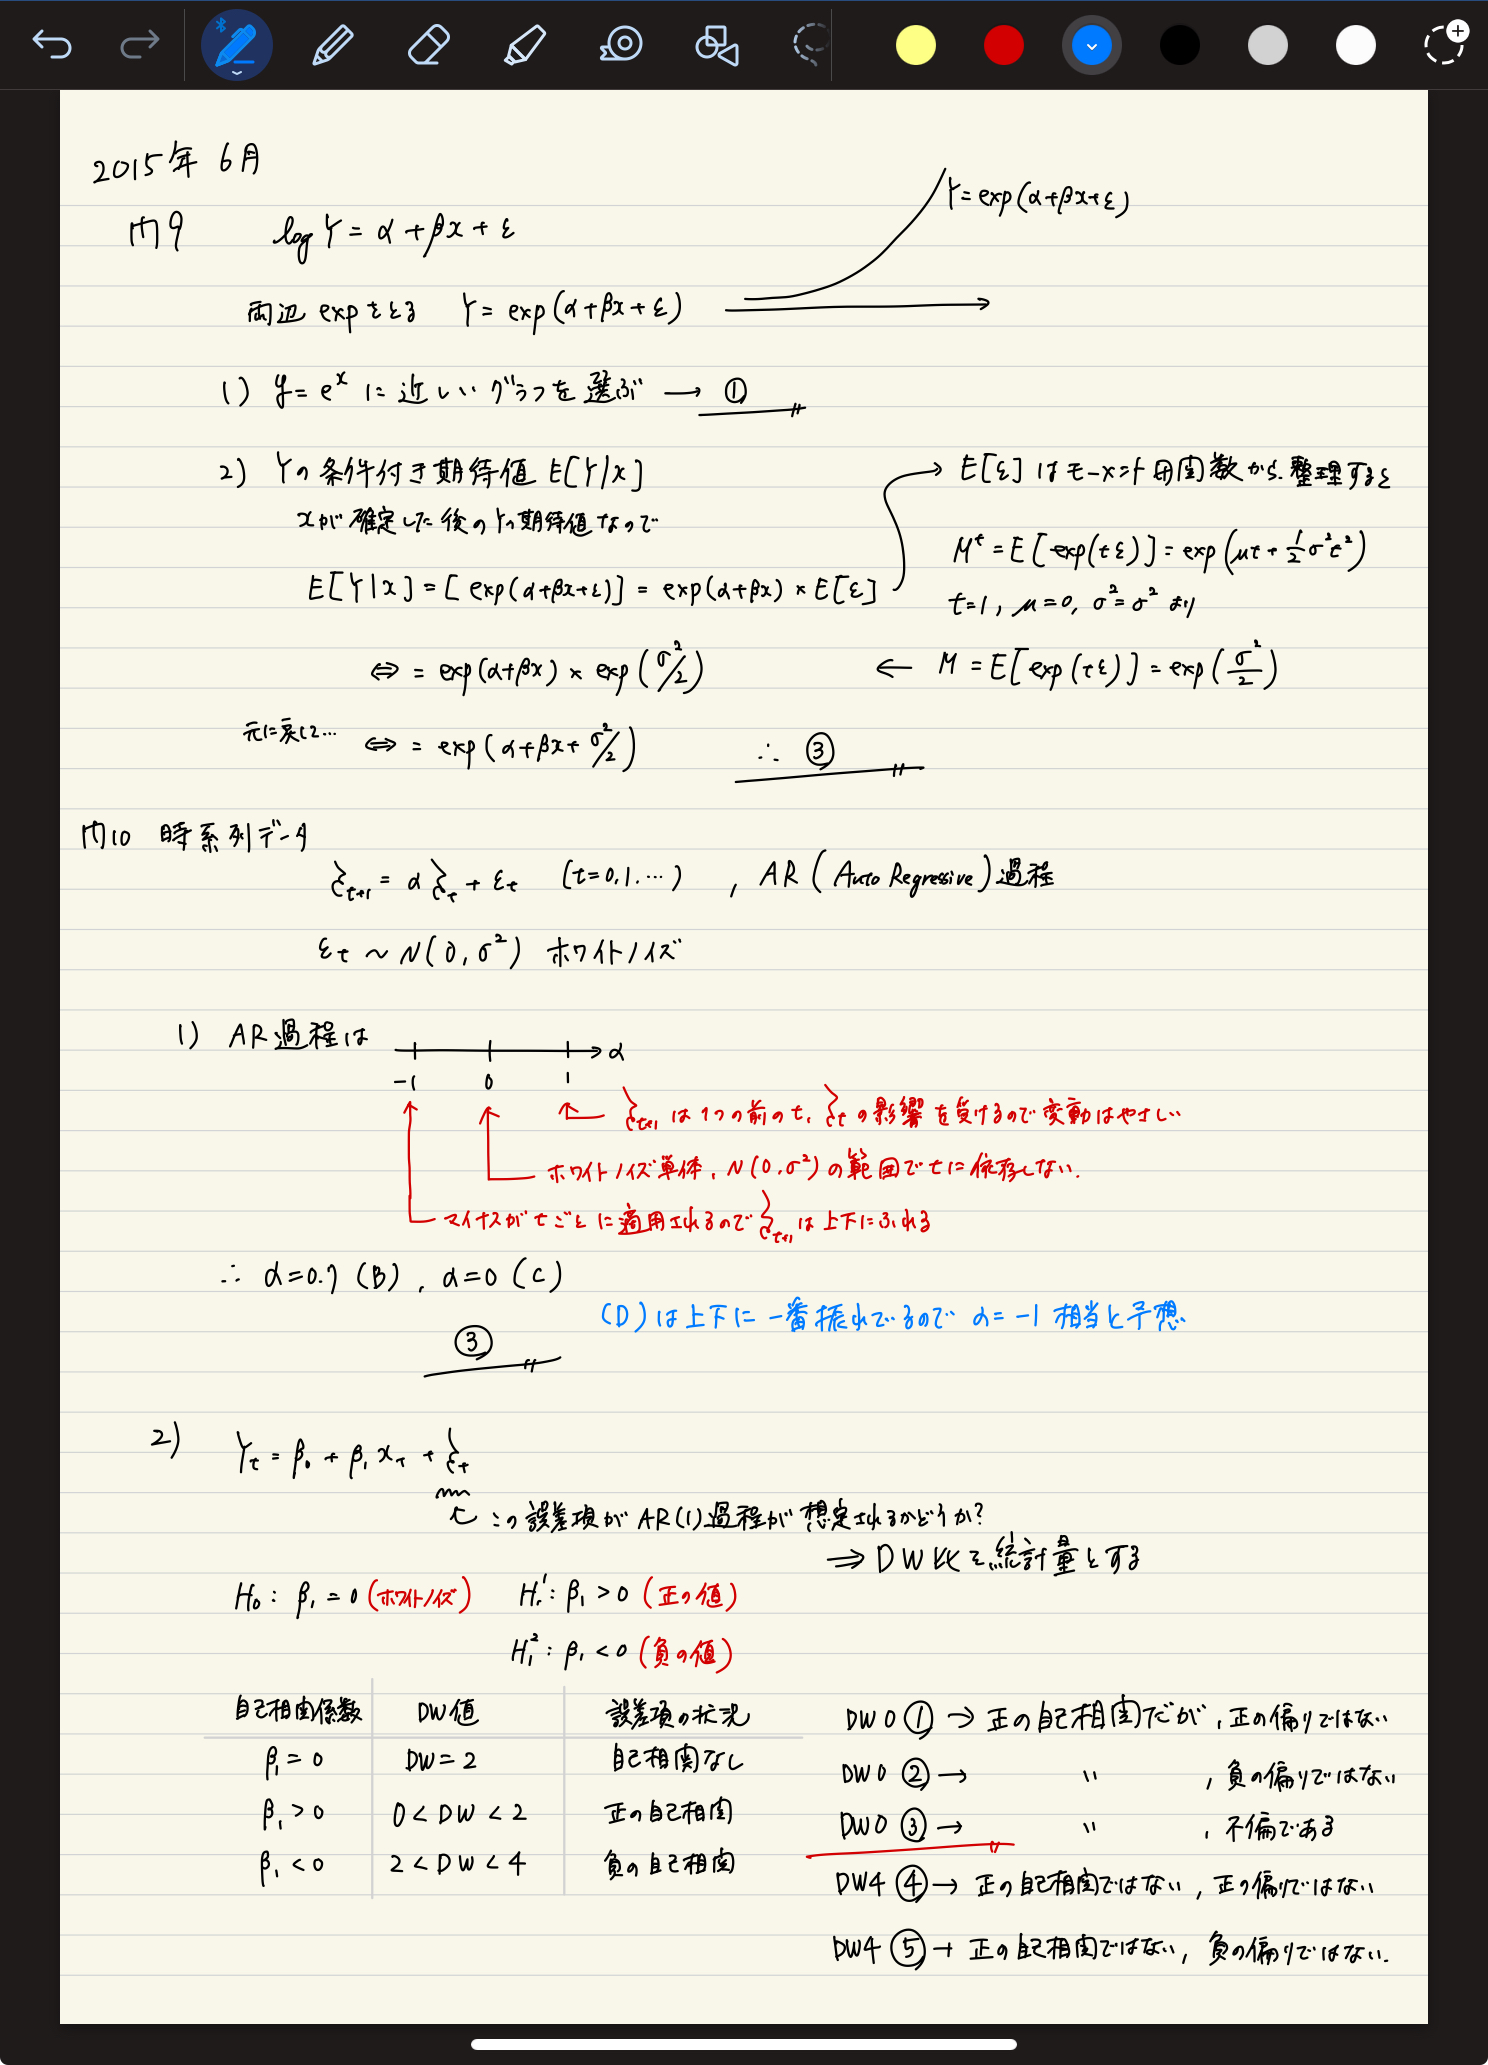 2015年 6月
Y=exp(α+βx+ε)
問9 log Y = α+βx+ε
両辺 expをとる Y= exp(α+βx+ε)
1) y=e^x に近いグラフを選ぶ → ①
2) Yの条件付き期待値 E[Y|x]
xが確定した後のYの期待値なので
E[Y|x]=[exp(α+βx+ε)]=exp(α+βx)×E[ε]
E[ε]はモーメント母関数から、整理すると
M^t=E[exp(tε)]=exp(μt+1/2σ²t²)
t=1, μ=0, σ²=σ² より
⇔ = exp(α+βx)×exp(σ²/2)
← M=E[exp(tε)]=exp(σ²/2)
元に戻して… ⇔ = exp(α+βx+σ²/2) ∴ ③
問10 時系列データ
ξt+1 = αξt + εt (t=0,1,…) , AR(Auto Regressive)過程
εt ~ N(0, σ²) ホワイトノイズ
1) AR過程は
α
-1 0 1
ξt+1 は1つの前のt, ξtの影響を受けるので変動はやさしい
ホワイトノイズ単体, N(0,σ²)の範囲でtに依存しない.
マイナスがtごとに適用されるのでξt+1は上下にふれる
∴ α=0.7(B), α=0(C)
(D)は上下に一番振れているので α=-1 相当と予想
③
2) Yt = β0 + β1xt + ξt
この誤差項がAR(1)過程が想定されるかどうか?
⇒ DW比を統計量とする
H0: β1=0(ホワイトノイズ) H1^1: β1>0(正の値)
H1^2: β1<0(負の値)
自己相関係数 DW値 誤差項の状況
β1=0 DW=2 自己相関なし
β1>0 0<DW<2 正の自己相関
β1<0 2<DW<4 負の自己相関
DW0 ① → 正の自己相関だが, 正の偏りではない
DW0 ② → 〃 , 負の偏りではない
DW0 ③ → 〃 , 不偏である
DW4 ④ → 正の自己相関ではない, 正の偏りではない
DW4 ⑤ → 正の自己相関ではない, 負の偏りではない.